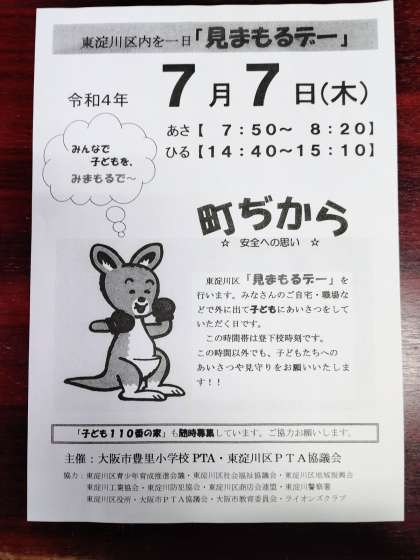 東淀川区内を一日「見まもるデー」
令和4年 7月7日(木)
あさ【 7:50～ 8:20】
ひる【14:40～15:10】
みんなで
子どもを、
みまもるで～
町ぢから
☆ 安全への思い ☆
東淀川区「見まもるデー」を
行います。みなさんのご自宅・職場な
どで外に出て子どもにあいさつをして
いただく日です。
この時間帯は登下校時刻です。
この時間以外でも、子どもたちへの
あいさつや見守りをお願いいたしま
す！！
「子ども110番の家」も随時募集しています。ご協力お願いします。
主催：大阪市豊里小学校PTA・東淀川区PTA協議会
協力：東淀川区青少年育成推進会議・東淀川区社会福祉協議会・東淀川区地域振興会
東淀川工業協会・東淀川防犯協会・東淀川区商店会連盟・東淀川警察署
東淀川区役所・大阪市PTA協議会・大阪市教育委員会・ライオンズクラブ